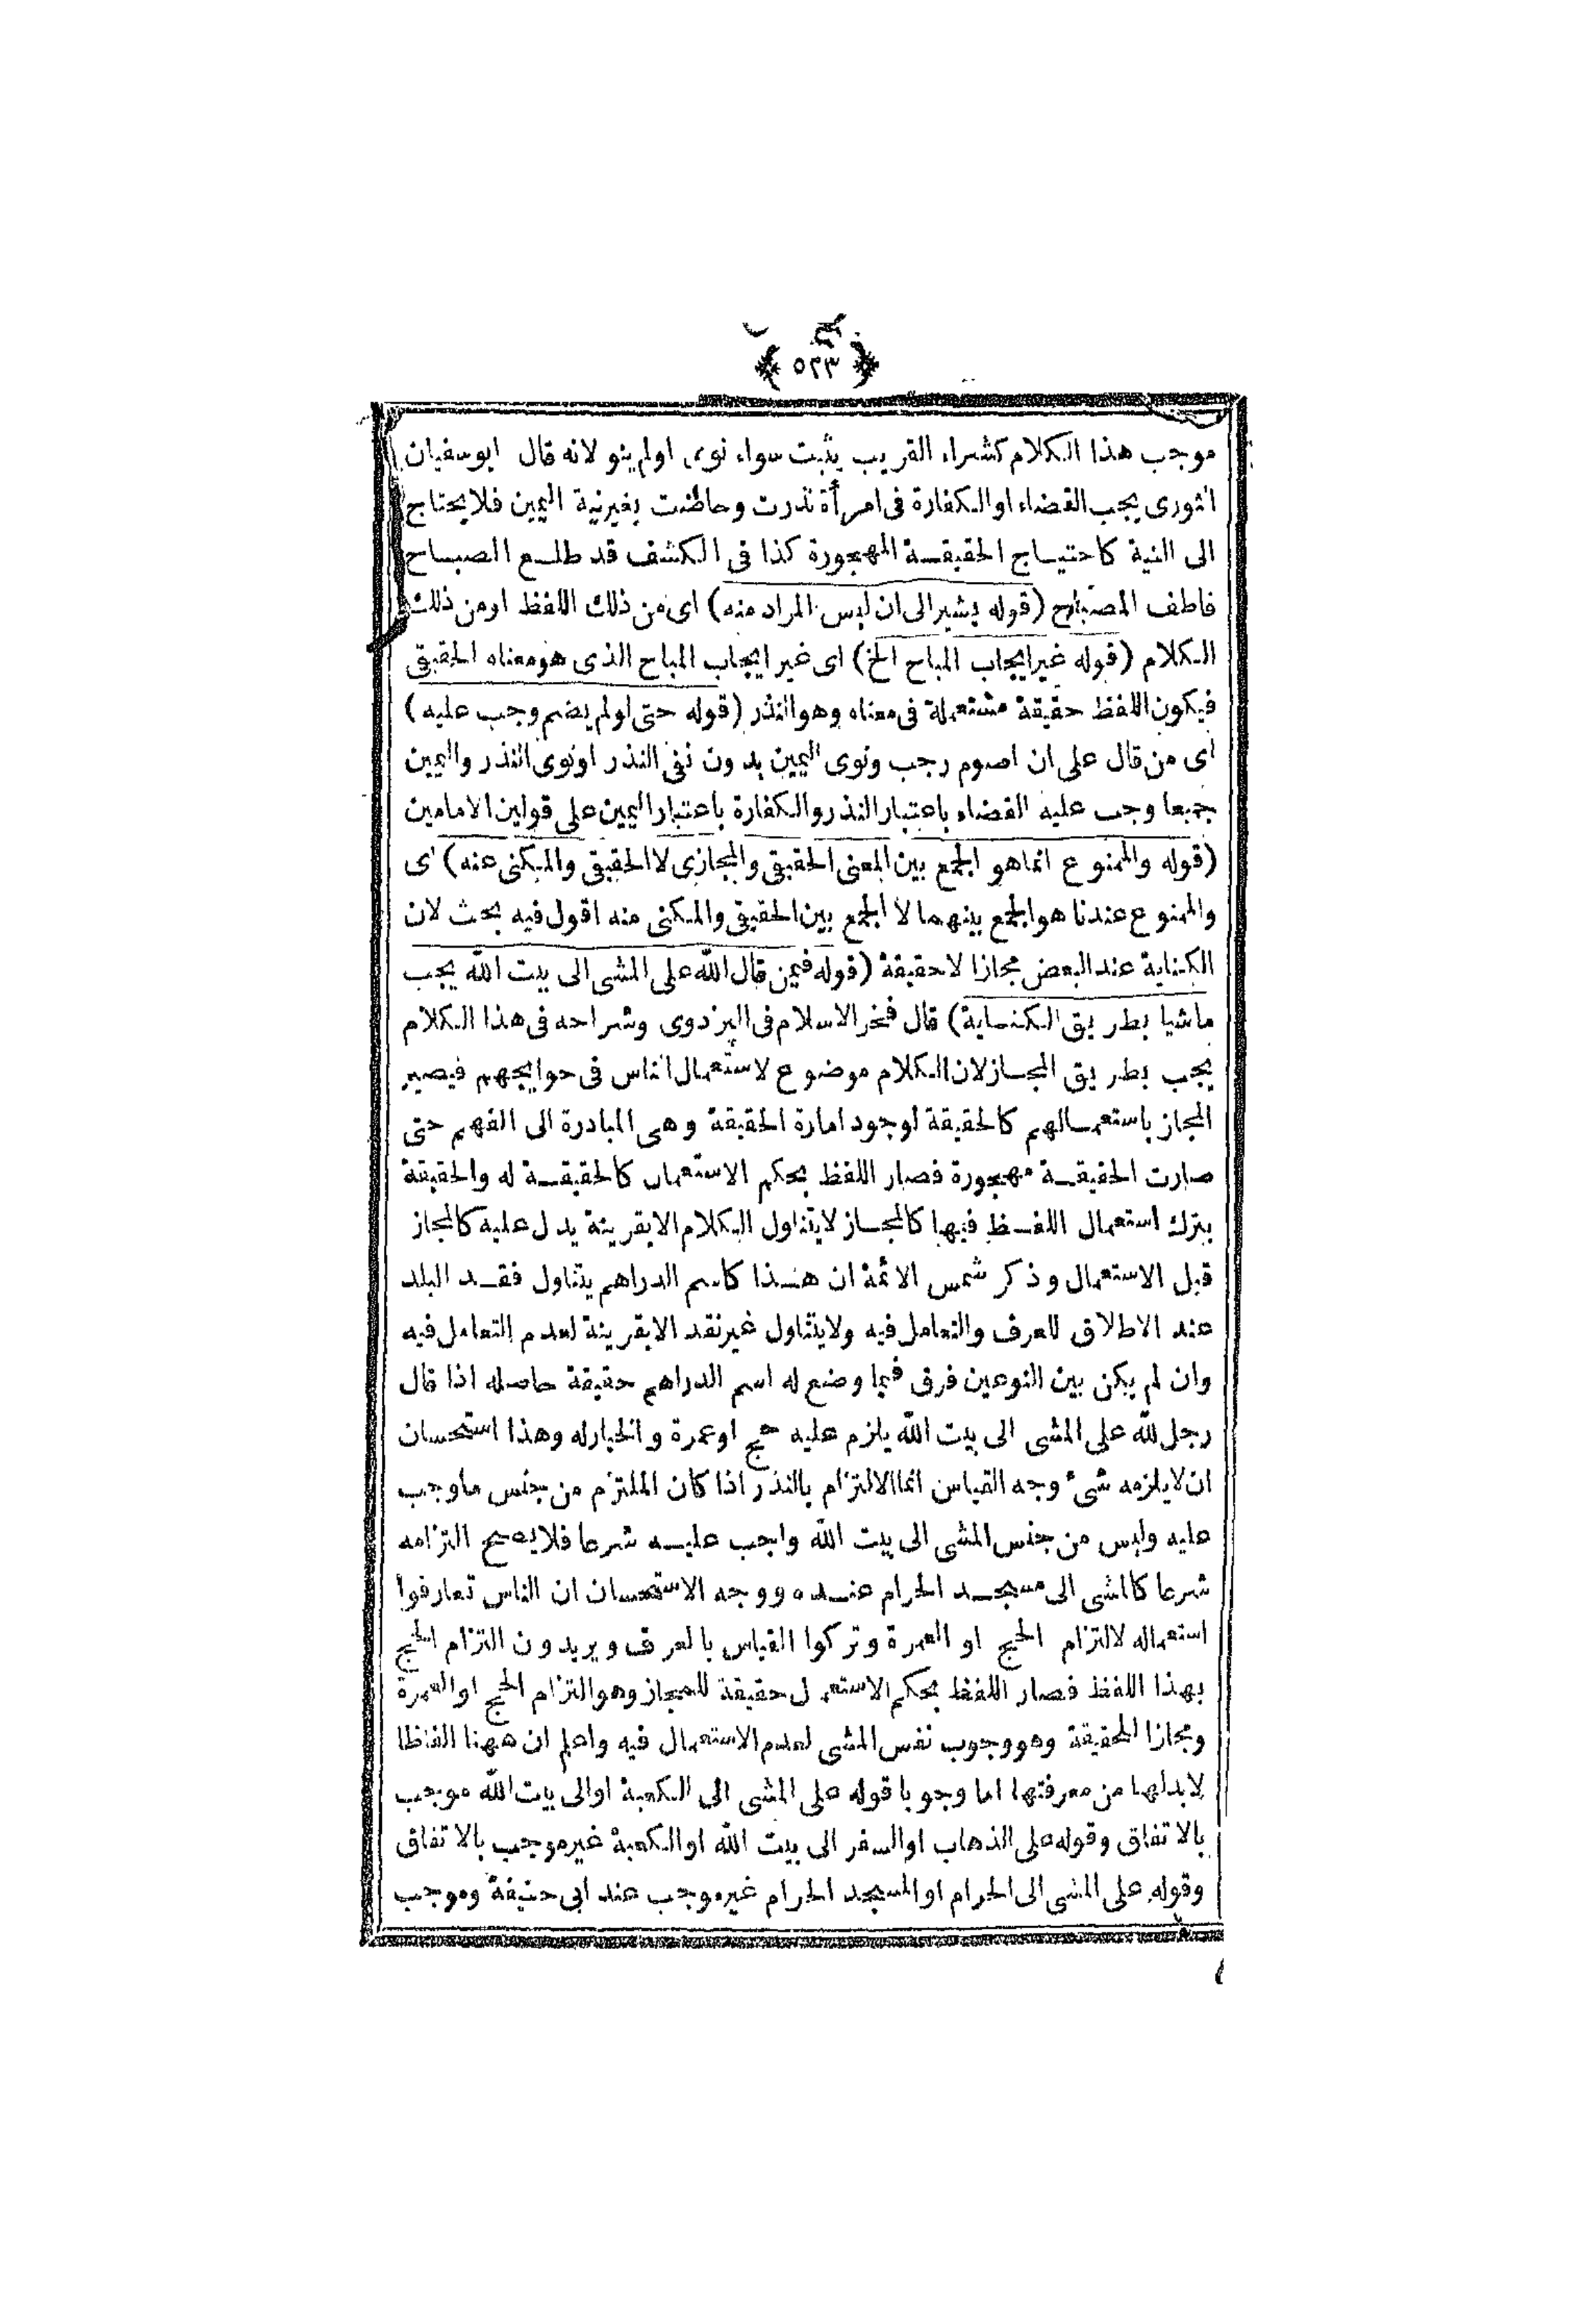 ﴿ ٥٢٣ ﴾
موجب هذا الكلام كشراء القريب يثبت سواء نوى اولم ينو لانه قال ابوسفيان
الثورى يجب القضاء او الكفارة فى امرأة نذرت وحاضت بغيرنية اليمين فلايحتاج
الى النية كاحتياج الحقيقة المهجورة كذا فى الكشف قد طلع الصباح
فاطف المصباح (قوله يشير الى ان ليس المراد منه) اى من ذلك اللفظ او من ذلك
الكلام (قوله غير ايجاب المباح الخ) اى غير ايجاب المباح الذى هو معناه الحقيقى
فيكون اللفظ حقيقة مستعملة فى معناه وهو النذر (قوله حتى لولم يضم وجب عليه)
اى من قال على ان اصوم رجب ونوى اليمين بدون نفى النذر اونوى النذر واليمين
جميعا وجب عليه القضاء باعتبار النذر والكفارة باعتبار اليمين على قولين الامامين
(قوله والممنوع انما هو الجمع بين المعنى الحقيقى والمجازى لا الحقيقى والمكنى عنه) اى
والممنوع عندنا هو الجمع بينهما لا الجمع بين الحقيقى والمكنى منه اقول فيه بحث لان
الكناية عند البعض مجازا لاحقيقة (قوله فيمن قال الله على المشى الى بيت الله يجب
ماشيا بطريق الكناية) قال فخر الاسلام فى البزدوى وشراحه فى هذا الكلام
يجب بطريق المجاز لان الكلام موضوع لاستعمال الناس فى حوايجهم فيصير
المجاز باستعمالهم كالحقيقة لوجود امارة الحقيقة وهى المبادرة الى الفهم حتى
صارت الحقيقة مهجورة فصار اللفظ بحكم الاستعمال كالحقيقة له والحقيقة
بترك استعمال اللفظ فيها كالمجاز لايتناول الكلام الابقرينة يدل عليه كالمجاز
قبل الاستعمال وذكر شمس الائمة ان هذا كاسم الدراهم يتناول فقد البلد
عند الاطلاق للعرف والتعامل فيه ولايتناول غير نقد الابقرينة لعدم التعامل فيه
وان لم يكن بين النوعين فرق فيما وضع له اسم الدراهم حقيقة حاصله اذا قال
رجل لله على المشى الى بيت الله يلزم عليه حج اوعمرة والخيارله وهذا استحسان
ان لايلزمه شئ وجه القياس انما الالتزام بالنذر اذا كان الملتزم من جنس ماوجب
عليه وليس من جنس المشى الى بيت الله واجب عليه شرعا فلايصح التزامه
شرعا كالمشى الى مسجد الحرام عنده ووجه الاستحسان ان الناس تعارفوا
استعماله لالتزام الحج او العمرة وتركوا القياس بالعرف ويريدون التزام الحج
بهذا اللفظ فصار اللفظ بحكم الاستعمال حقيقة للمجاز وهو التزام الحج او العمرة
ومجازا للحقيقة وهو وجوب نفس المشى لعدم الاستعمال فيه واعلم ان ههنا الفاظا
لابدلها من معرفتها اما وجوبا قوله على المشى الى الكعبة اوالى بيت الله موجب
بالاتفاق وقوله على الذهاب اوالسفر الى بيت الله اوالكعبة غير موجب بالاتفاق
وقوله على المشى الى الحرام اوالمسجد الحرام غير موجب عند ابى حنيفة وموجب